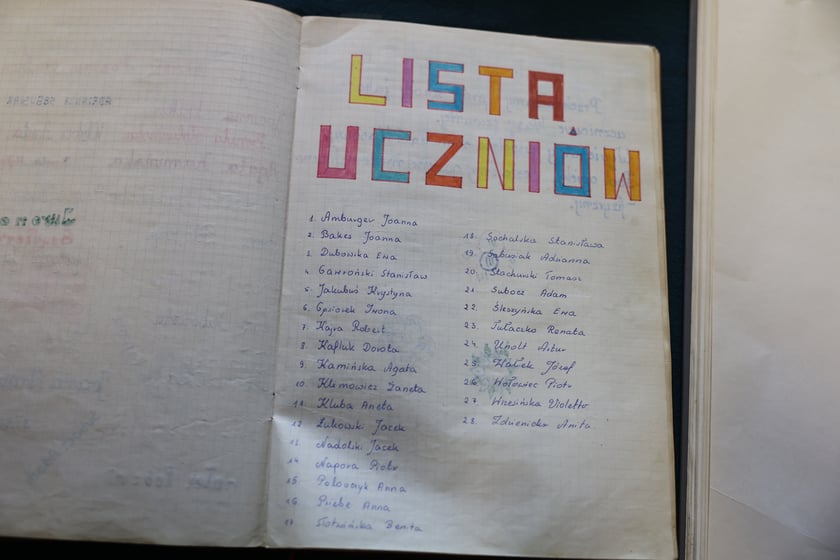 LISTA
UCZNIÓW
1. Amburger Joanna
2. Bakes Joanna
3. Dubowska Ewa
4. Gawroński Stanisław
5. Jakubuś Krystyna
6. Gpsiorek Iwona
7. Kajra Robert
8. Kafluk Dorota
9. Kamińska Agata
10. Klimowicz Żaneta
11. Kluba Aneta
12. Łukowski Jacek
13. Nadolski Jacek
14. Napora Piotr
15. Połończyk Anna
16. Priebe Anna
17. Benita
18. Sochalska Stanisława
19. Sabusiak Adrianna
20. Stachurski Tomasz
21. Subocz Adam
22. Śleszyńska Ewa
23. Tułaczko Renata
24. Unolt Artur
25. Wałek Józef
26. Wołowiec Piotr
27. Wresińska Violetta
28. Anita